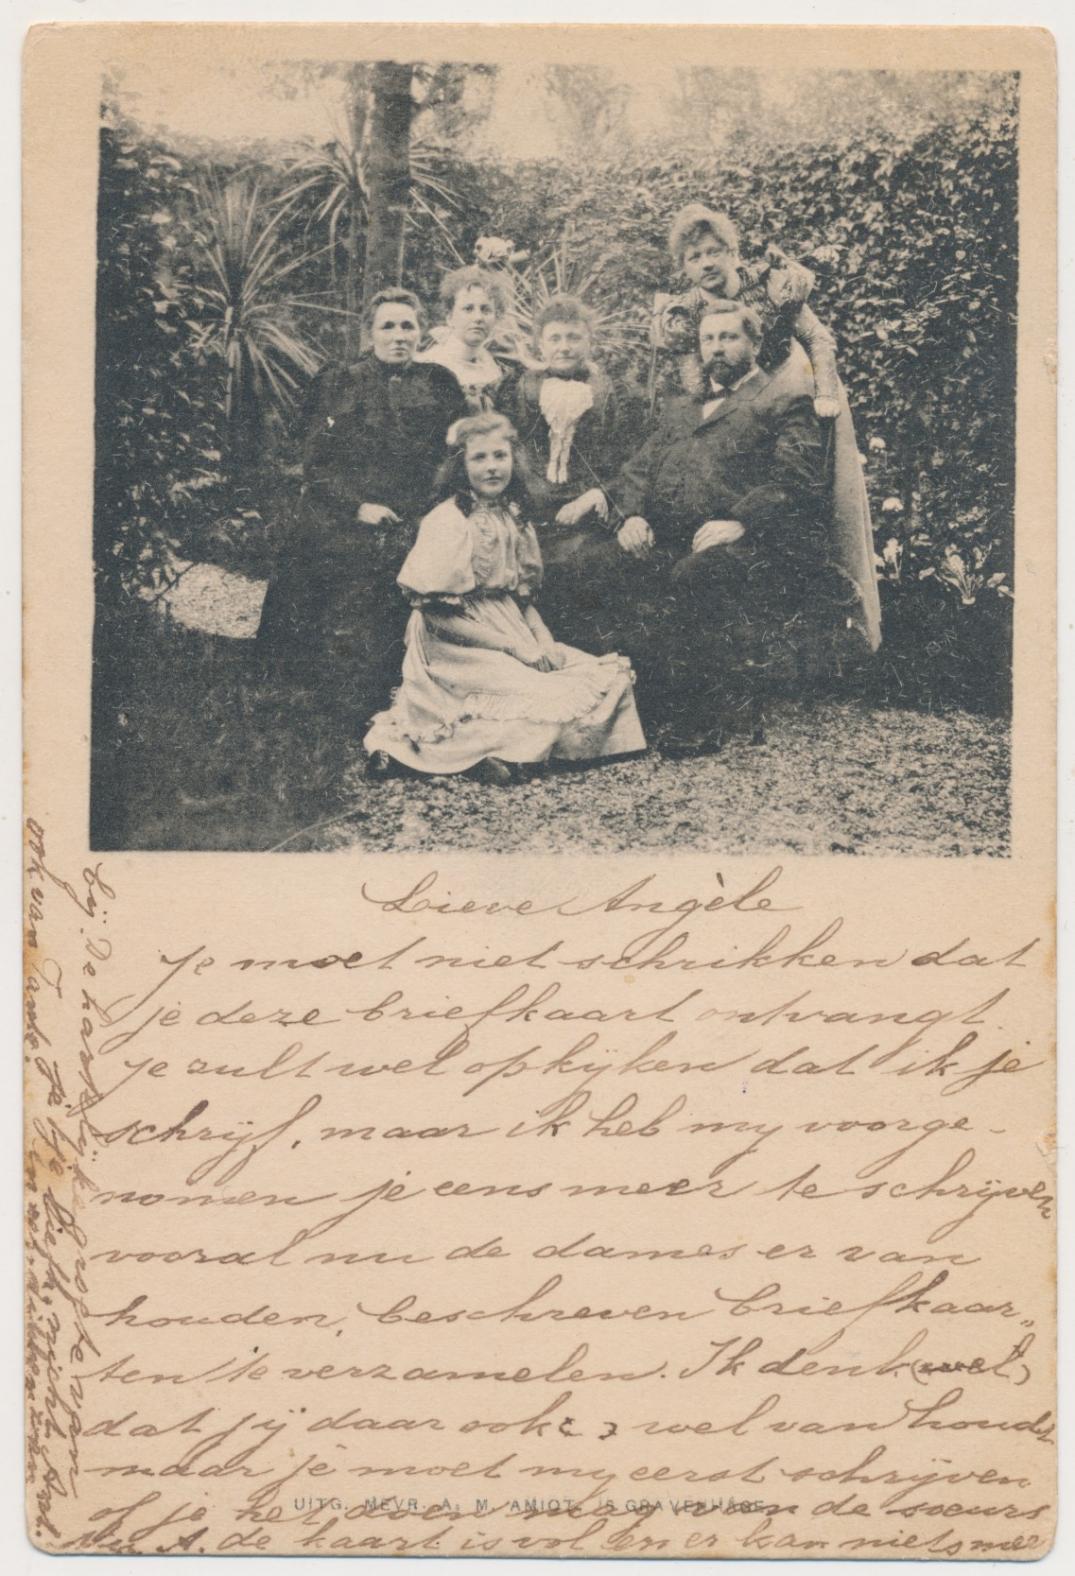 Lieve Angèle
Je moet niet schrikken dat
je deze briefkaart ontvangt.
Je zult wel opkijken dat ik je
schrijf, maar ik heb my voorge-
nomen je eens meer te schrijven
vooral nu de dames er van
houden, beschreven briefkaar„
ten te verzamelen. Ik denk (wel)
dat jij daar ook wel van houdt
maar je moet my eerst schrijven
of je het doen mag van de soeurs
Nu A. de kaart is vol en er kan niets meer
bij. De hartelijke groeten van
je liefh. nicht
ook van Tante
UITG. MEVR. A. M. AMIOT. 'S GRAVENHAGE.